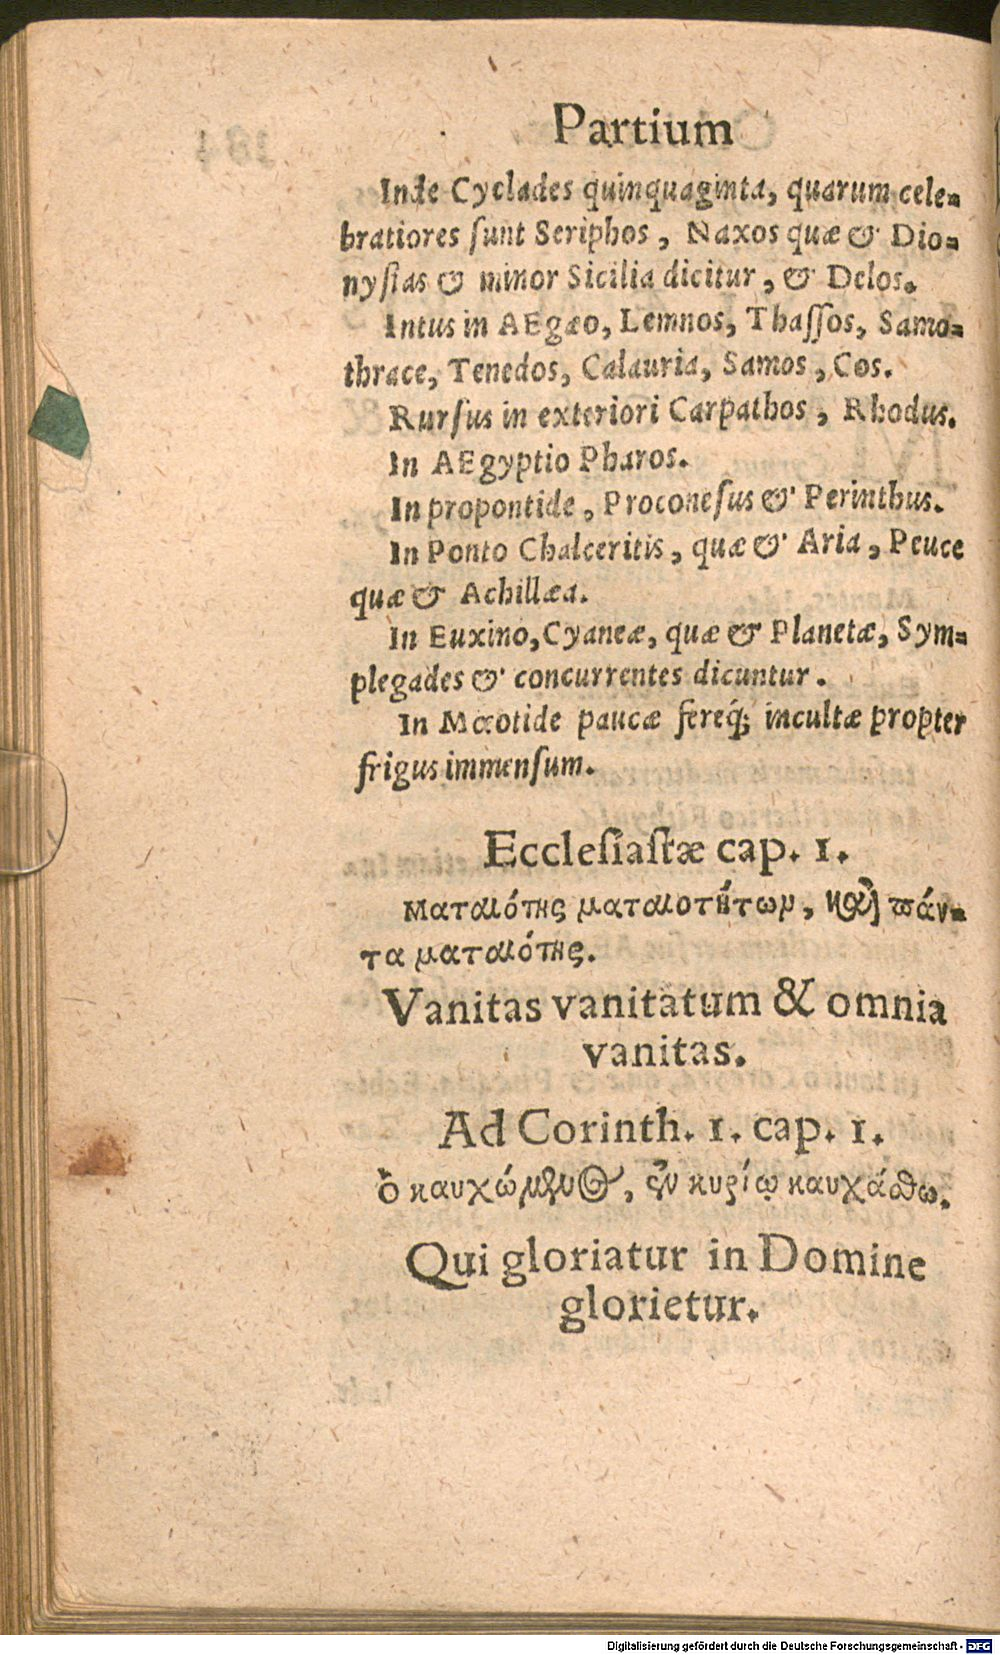 Partium
Inde Cyclades quinquaginta, quarum cele-
bratiores ſunt Seriphos, Naxos quæ & Dio-
nyſias & minor Sicilia dicitur, & Delos.
Intus in AEgæo, Lemnos, Thaſſos, Samo-
thrace, Tenedos, Calauria, Samos, Cos.
Rurſus in exteriori Carpathos, Rhodus.
In AEgyptio Pharos.
In propontide, Proconeſus & Perinthus.
In Ponto Chalceritis, quæ & Aria, Peuce
quæ & Achillæa.
In Euxino, Cyaneæ, quæ & Planetæ, Sym-
plegades & concurrentes dicuntur.
In Mœotide paucæ fereq́; incultæ propter
frigus immenſum.
Eccleſiaſtæ cap. 1.
Ματαιότης ματαιοτήτων, καὶ πάν-
τα ματαιότης.
Vanitas vanitatum & omnia
vanitas.
Ad Corinth. 1. cap. 1.
ὁ καυχώμενος, ἐν κυρίῳ καυχάσθω.
Qui gloriatur in Domine
glorietur.
Digitalisierung gefördert durch die Deutsche Forschungsgemeinschaft - DFG